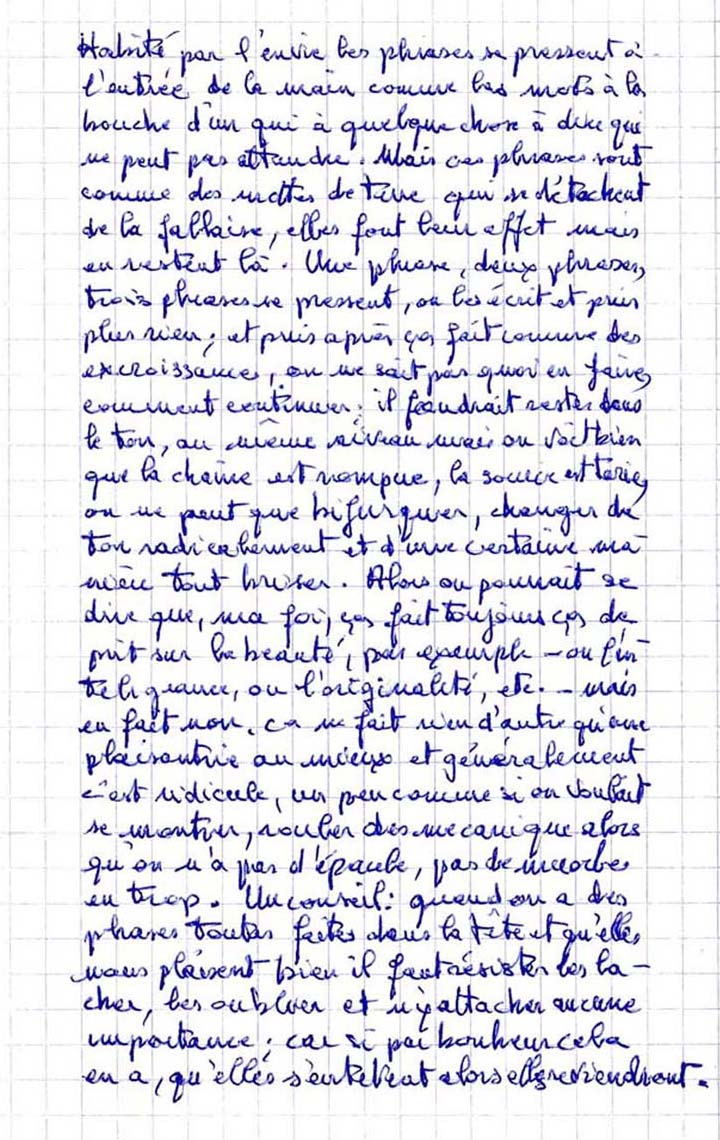 Habité par l'envie les phrases se pressent à
l'entrée de la main comme les mots à la
bouche d'un qui à quelque chose à dire qui
ne peut pas attendre. Mais ces phrases sont
comme des mottes de terre qui se détachent
de la fallaise, elles font leur effet mais
en restent là. Une phrase, deux phrases,
trois phrases se pressent, on les écrit et puis
plus rien; et puis après ça fait comme des
excroissances, on ne sait pas quoi en faire,
comment continuer; il faudrait rester dans
le ton, au même niveau mais on voit bien
que la chaine est rompue, la source est tarie,
on ne peut que bifurquer, changer de
ton radicalement et d'une certaine ma
nière tout briser. Alors on pourrait se
dire que, ma foi, ça fait toujours ça de
prit sur la beauté, par exemple – ou l'in
telligeance, ou l'originalité, etc. – mais
en fait non. ca ne fait rien d'autre qu'une
plaisantrie au mieux et généralement
c'est ridicule, un peu comme si on voulait
se montrer, rouler des mecanique alors
qu'on n'a pas d'épaule, pas de
en trop. Un conseil: quand on a des
phrases toutes faites dans la tête et qu'elles
nous plaisent bien il faut résister les la-
cher, les oublier et n'y attacher aucune
importance; car si par bonheur cela
en a, qu'elles s'entêtent alors elles reviendront.